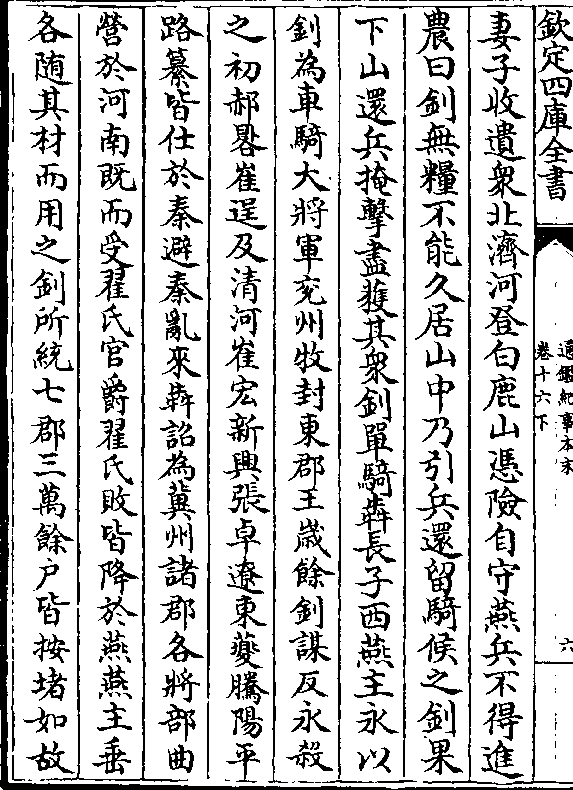 欽定四庫全書
通鑑紀事本末
卷十六下
六
妻子收遺衆北濟河登白鹿山憑險自守燕兵不得進
農曰釗無糧不能久居山中乃引兵還留騎候之釗果
下山還兵掩擊盡獲其衆釗單騎犇長子西燕主永以
釗為車騎大將軍兖州牧封東郡王歲餘釗謀反永殺
之初郝晷崔逞及清河崔宏新興張卓遼東夔騰陽平
路纂皆仕於秦避秦亂來犇詔為冀州諸郡各將部曲
營於河南既而受翟氏官爵翟氏敗皆降於燕燕主垂
各隨其材而用之釗所統七郡三萬餘户皆按堵如故